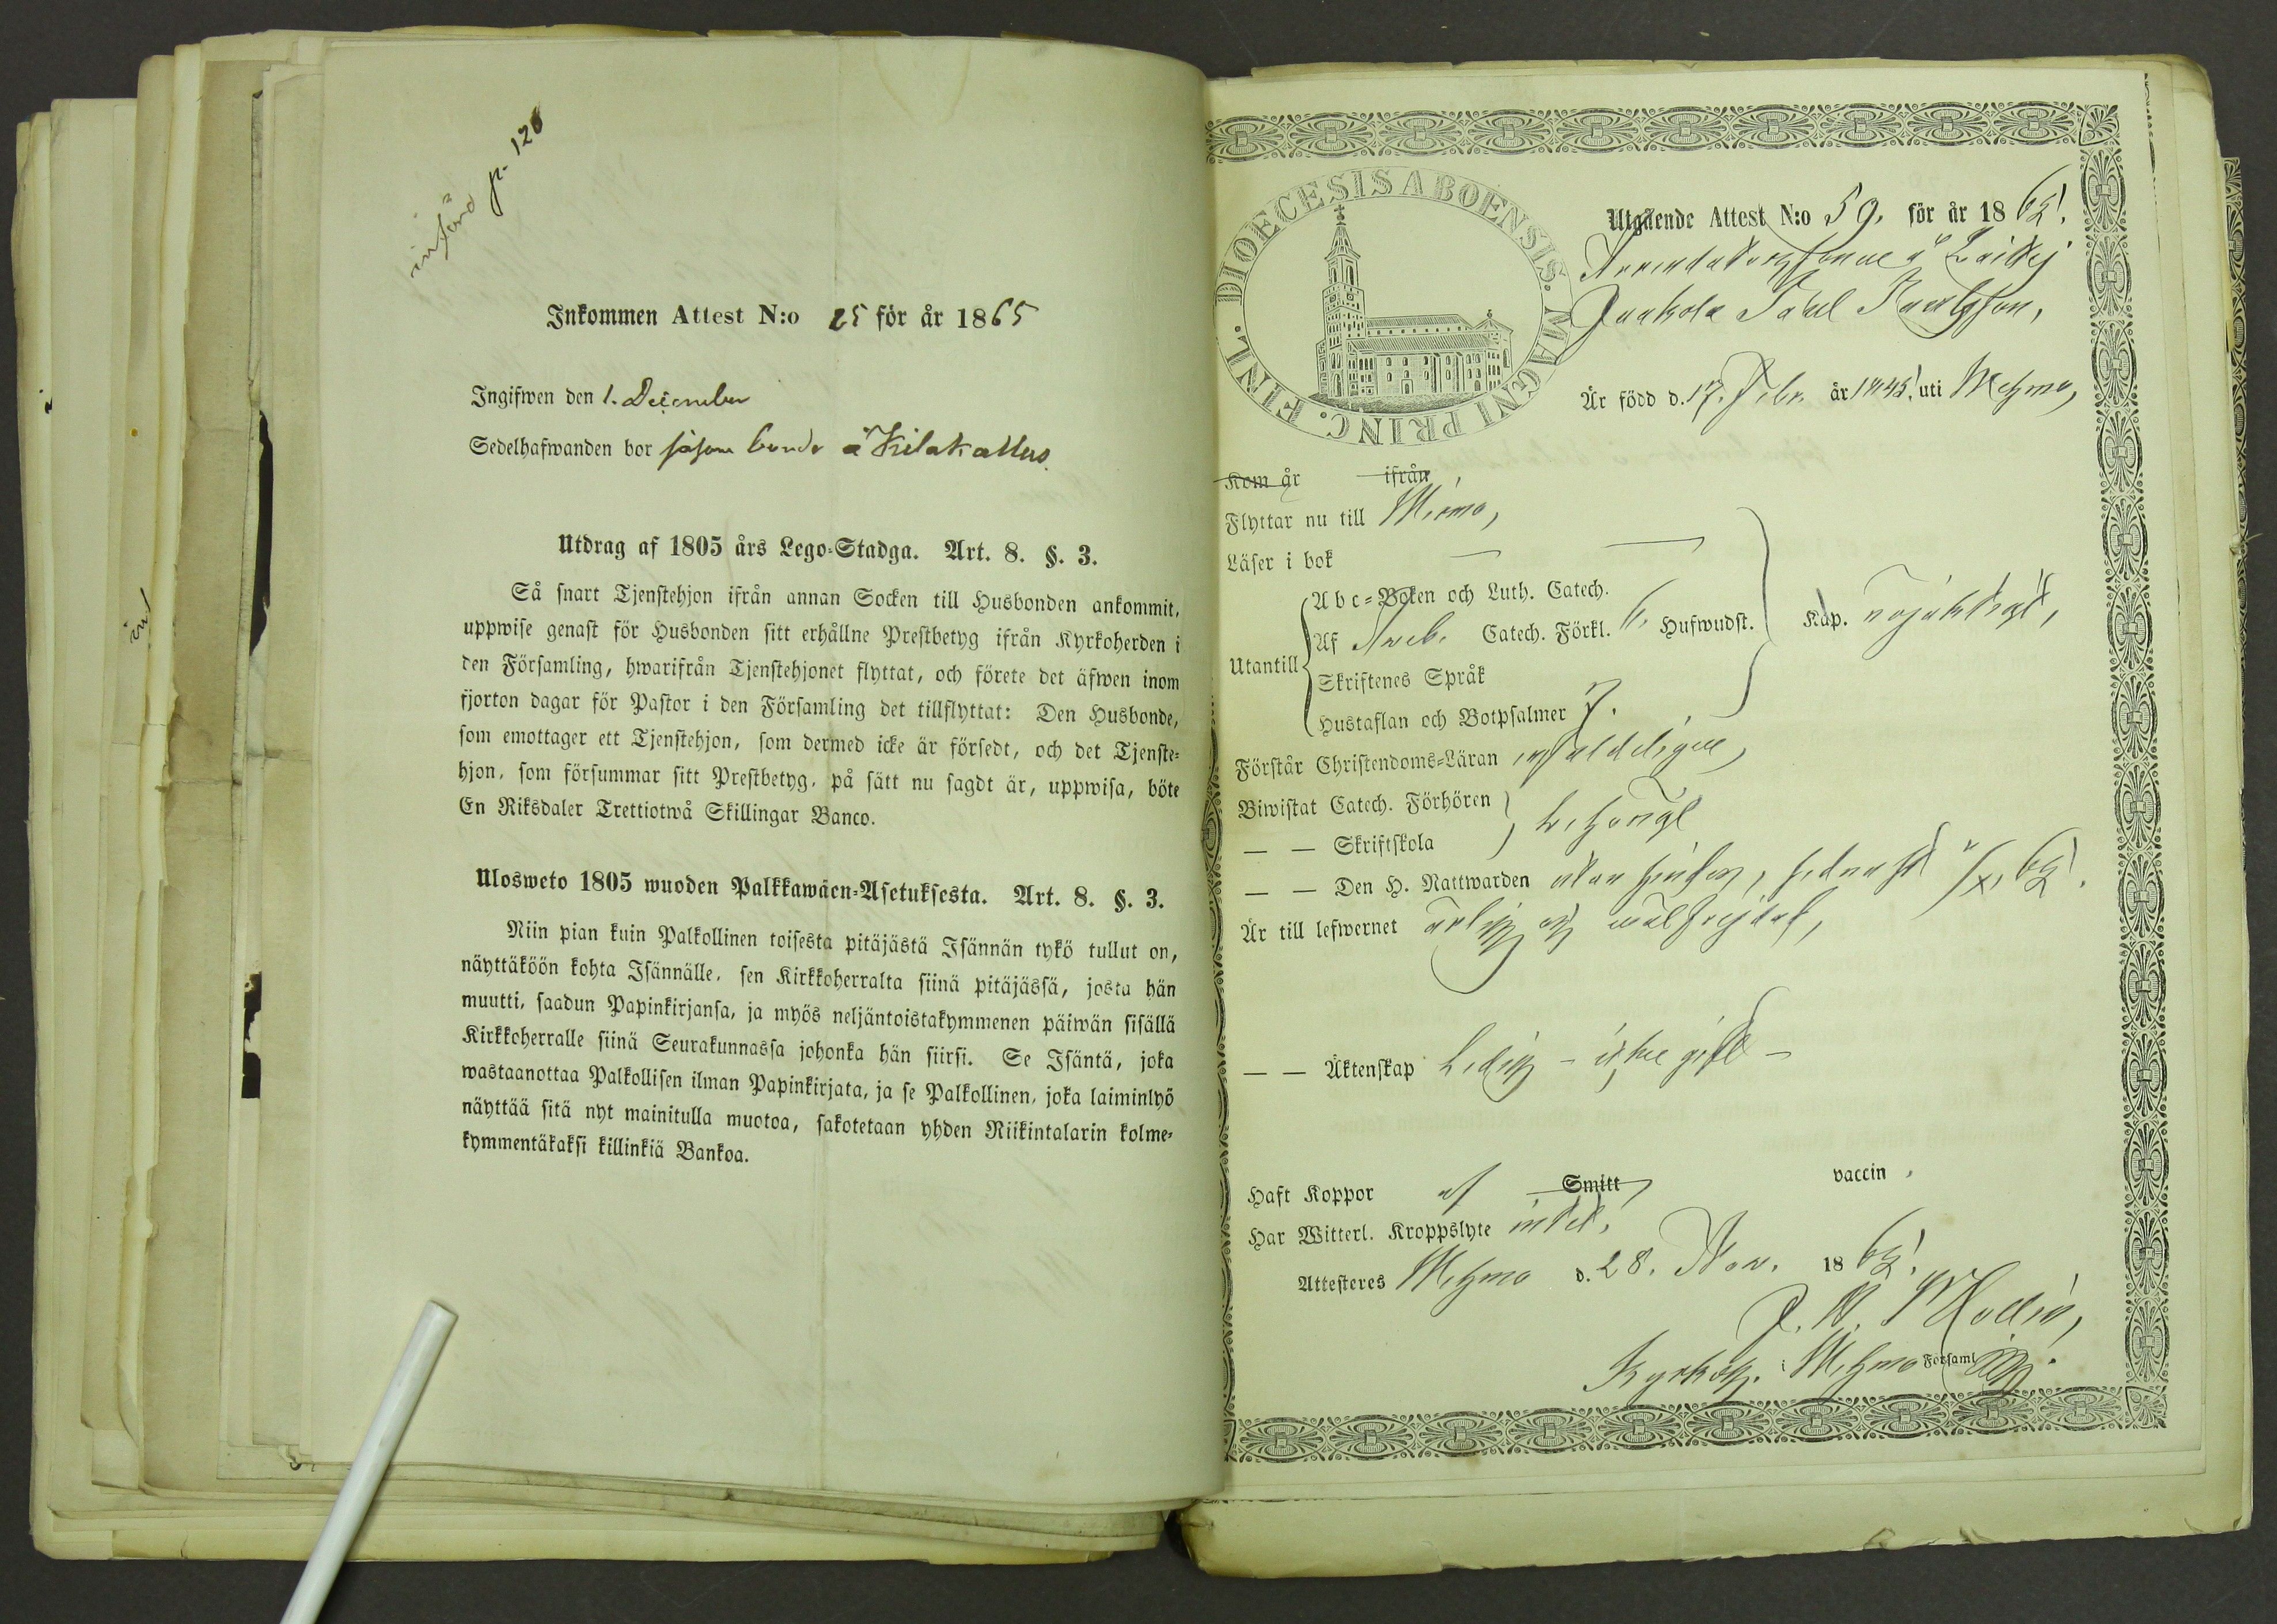 införd p. 120
Inkommen Attest N:o 25 för år 1865
Ingifwen den 1. December
Sedelhafwanden bor såsom bonde å Kilakallus
Utdrag af 1805 års Lego-Stadga. Art. 8. §. 3.
Så snart Tjenstehjon ifrån annan Socken till Husbonden ankommit,
uppwise genast för Husbonden sitt erhållne Prestbetyg ifrån Kyrkoherden i
den Församling, hwarifrån Tjenstehjonet flyttat, och förete det äfwen inom
fjorton dagar för Pastor i den Församling det tillflyttat: Den Husbonde,
som emottager ett Tjenstehjon, som dermed icke är försedt, och det Tjenste-
hjon, som försummar sitt Prestbetyg, på sätt nu sagdt är, uppwisa, böte
En Riksdaler Trettiotwå Skillingar Banco.
Ulosweto 1805 wuoden Palkkawäen-Asetuksesta. Art. 8. §. 3.
Niin pian kuin Palkollinen toisesta pitäjästä Isännän tykö tullut on,
näyttäköön kohta Isännälle, sen Kirkkoherralta siinä pitäjässä, josta hän
muutti, saadun Papinkirjansa, ja myös neljäntoistakymmenen päiwän sisällä
Kirkkoherralle siinä Seurakunnassa johonka hän siirsi. Se Isäntä, joka
wastaanottaa Palkollisen ilman Papinkirjata, ja se Palkollinen, joka laiminlyö
näyttää sitä nyt mainitulla muotoa, sakotetaan yhden Riikintalarin kolme-
kymmentäkaksi killinkiä Bankoa.
FINL. DIOECESIS ABOENSIS. MAGNI PRINC.
Utgående Attest N:o 59. för år 1865.
å Laitis
Juakola
Är född d. 17. Febr. år 1845. uti Mehmo,
Kom år ifrån
Flyttar nu till Wirmo,
Läser i bok — —
Utantill
Abc-Boken och Luth. Catech.
Af Sweb. Catech. Förkl. 6. Hufwudst.
Skriftenes Språk
Hustaflan och Botpsalmer 7.
Kap. nöjaktigt,
Förstår Christendoms-Läran enfaldeligen,
Biwistat Catech. Förhören
— — Skriftskola
behörigt
— — Den H. Nattwarden utan hinder, sednast 65.
Är till lefwernet ärlig och wälfrejdad,
— — Äktenskap Ledig – icke gift –
Haft Koppor af Smitt vaccin.
Har Witterl. Kroppslyte intet.
Attesteres Mehmo d. 28. Nov. 1865.
Kyrkoh. i Mehmo Församl.